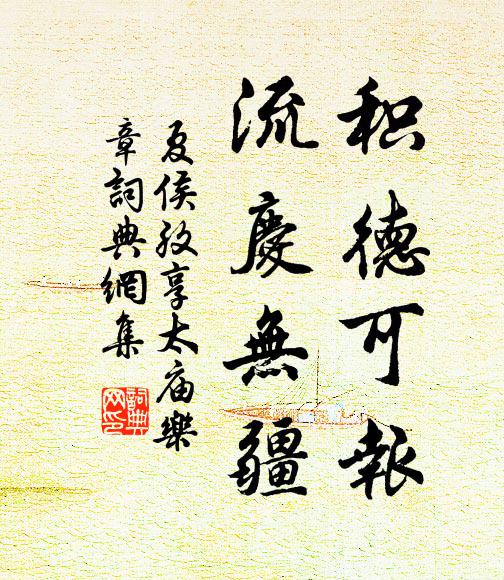 积德可報
流慶無疆
夏侯孜享太庙樂
章詞典網集
詞典
网印